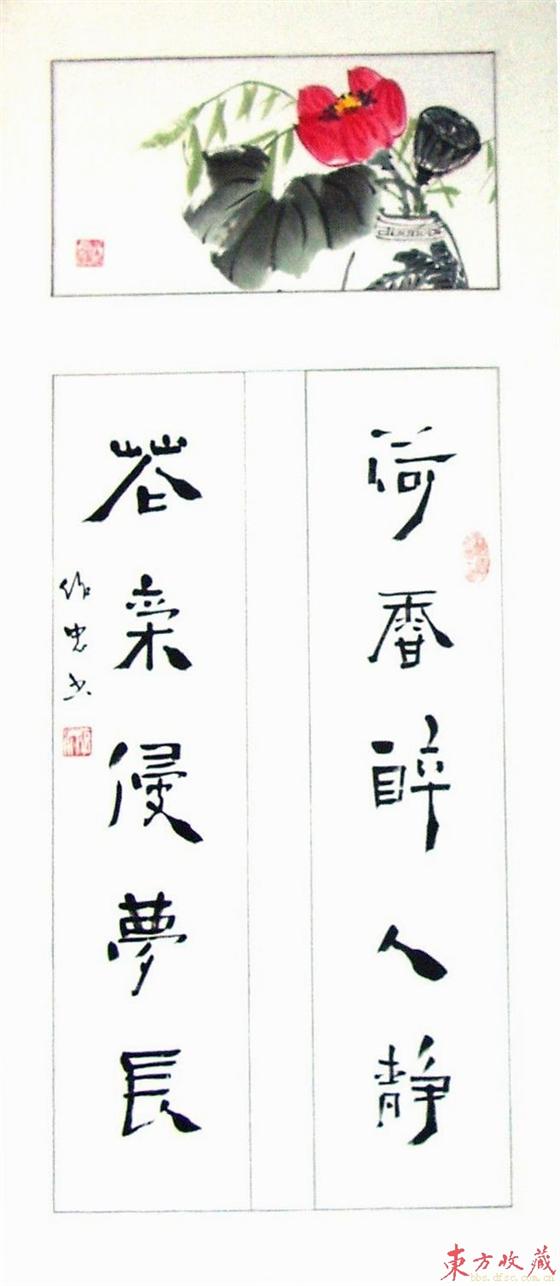 荷香醉人静
花侵夢長
作忠书
東方收藏
bbs.dfsc.com.cn